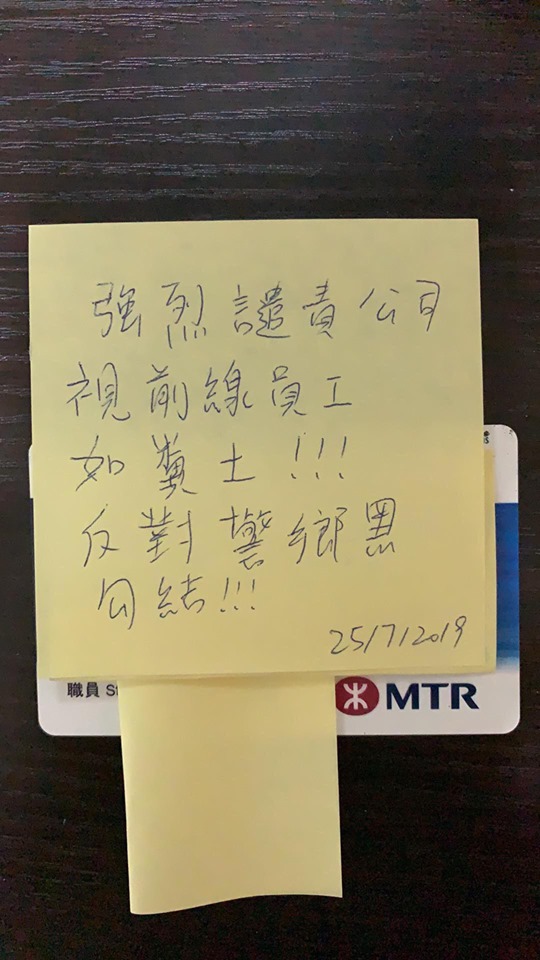 強烈譴責公司
視前線員工
如糞土!!!
反對警鄉黑
勾結!!!
25/7/2019
職員 S
MTR